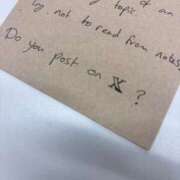 topic of an
log, not to read from notes,
Do you post on X ?